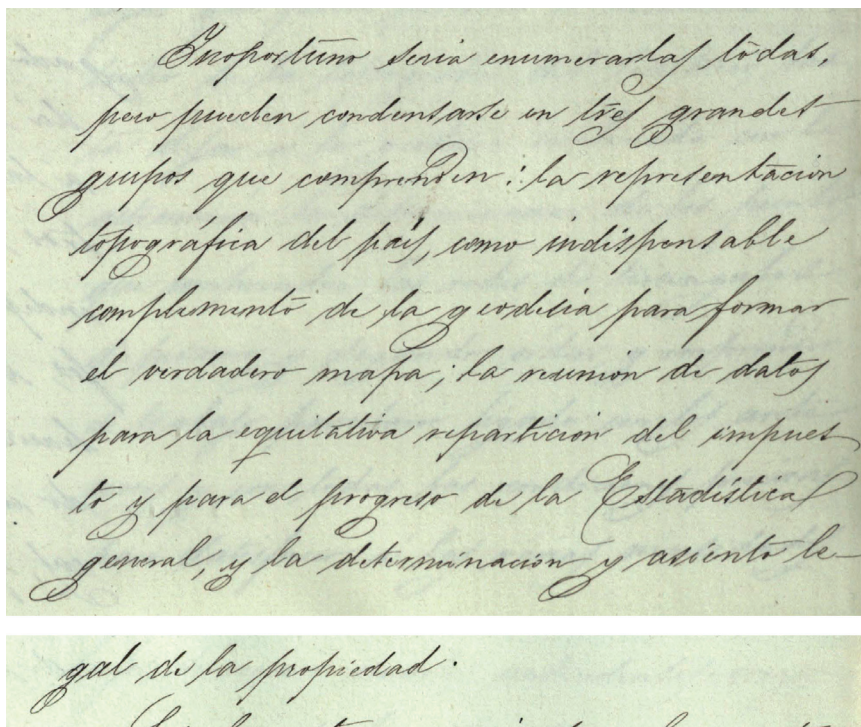 Inoportuno seria enumerarlas todas,
pero pueden condensarse en tres grandes
grupos que comprenden: la representacion
topográfica del país, como indispensable
complemento de la geodesia para formar
el verdadero mapa; la reunion de datos
para la equitativa reparticion del impues
to y para el progreso de la Estadística
general, y la determinacion y asiento le-
gal de la propiedad.